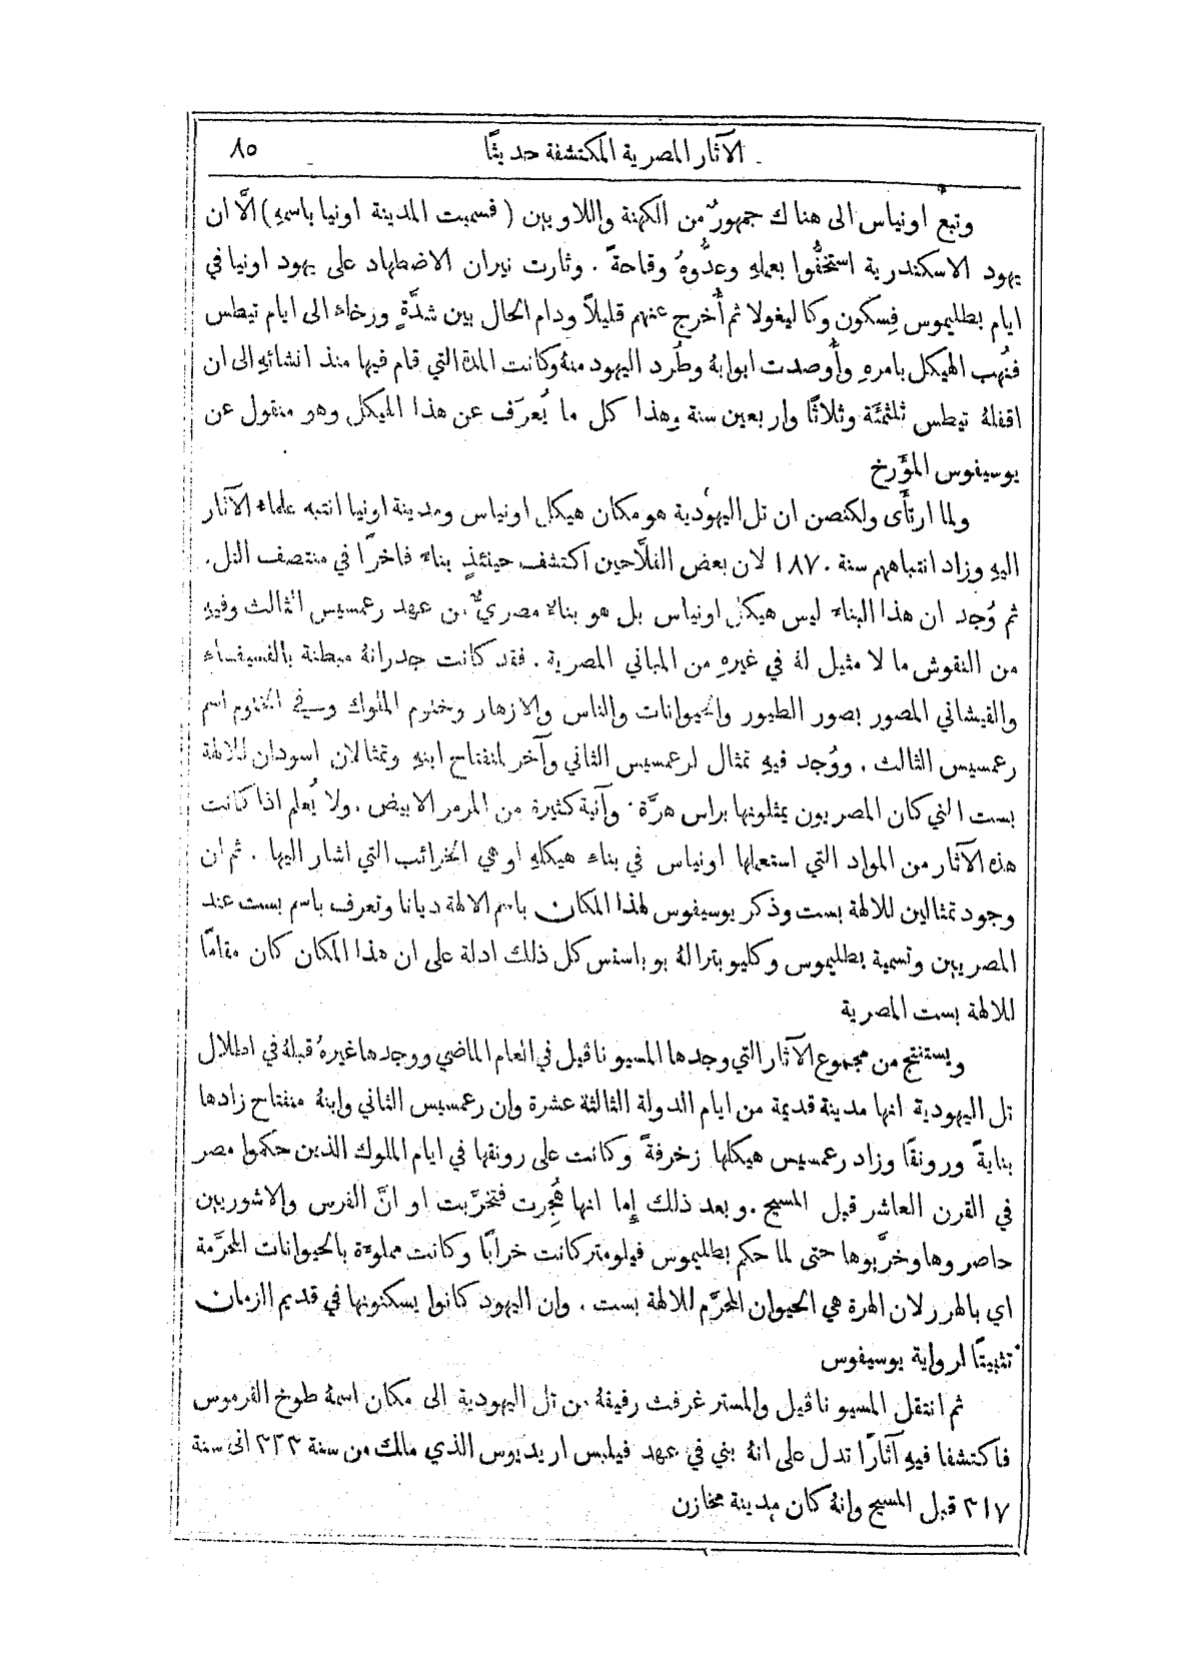 الآثار المصرية المكتشفة حديثًا ٨٥
وتبع اونياس الى هناك جمهورٌ من الكهنة واللاويين (فسميت المدينة اونيا باسمهِ) الَّا ان
يهود الاسكندرية استخفُّوا بعملهِ وعدُّوهُ وقاحةً . وثارت نيران الاضطهاد على يهود اونيا في
ايام بطليموس فِسكون وكاليغولا ثم أُخرج عنهم قليلاً ودام الحال بين شدَّةٍ ورخاء الى ايام تيطس
فنُهب الهيكل بامرهِ وأُوصدت ابوابهُ وطُرد اليهود منهُ وكانت المدة التي قام فيها منذ انشائهِ الى ان
اقفلهُ تيطس ثلثمئَة وثلاثًا واربعين سنة وهذا كل ما يُعرَف عن هذا الهيكل وهو منقول عن
يوسيفوس المؤَرخ
ولما ارتأَى ولكنصن ان تل اليهودية هو مكان هيكل اونياس ومدينة اونيا انتبه علماء الآثار
اليهِ وزاد انتباههم سنة ١٨٧٠ لان بعض الفلَّاحين اكتشف حينئذٍ بناءً فاخرًا في منتصف التل.
ثم وُجد ان هذا البناء ليس هيكل اونياس بل هو بناءٌ مصريٌّ من عهد رعمسيس الثالث وفيهِ
من النقوش ما لا مثيل لهُ في غيرهِ من المباني المصرية . فقد كانت جدرانهُ مبطنة بالفسيفساء
والقيشاني المصور بصور الطيور والحيوانات والناس والازهار وختوم الملوك وفي الختوم اسم
رعمسيس الثالث . ووُجد فيهِ تمثال لرعمسيس الثاني وآخر لمنفتاح ابنهِ وتمثالان اسودان للالهة
بست التي كان المصريون يمثلونها براس هرَّة . وآنية كثيرة من المرمر الابيض . ولا يُعلم اذا كانت
هذه الآثار من المواد التي استعملها اونياس في بناء هيكلهِ او هي الخرائب التي اشار اليها . ثم ان
وجود تمثالين للالهة بست وذكر يوسيفوس لهذا المكان باسم الالهة ديانا وتعرف باسم بست عند
المصريين وتسمية بطليموس وكليوبترا لهُ بوباستس كل ذلك ادلة على ان هذا المكان كان مقامًا
للالهة بست المصرية
ويستنتج من مجموع الآثار التي وجدها المسيو ناڤيل في العام الماضي ووجدها غيرهُ قبلهُ في اطلال
تل اليهودية انها مدينة قديمة من ايام الدولة الثالثة عشرة وان رعمسيس الثاني وابنهُ منفتاح زادها
بنايةً ورونقًا وزاد رعمسيس هيكلها زخرفةً وكانت على رونقها في ايام الملوك الذين حكموا مصر
في القرن العاشر قبل المسيح . وبعد ذلك إِما انها هُجِرت فتخرَّبت او انَّ الفرس والاشوريين
حاصروها وخرَّبوها حتى لما حكم بطليموس فيلومتر كانت خرابًا وكانت مملوءة بالحيوانات المحرَّمة
اي بالهرر لان الهرة هي الحيوان المحرَّم للالهة بست . وان اليهود كانوا يسكنونها في قديم الزمان
تثبيتًا لرواية يوسيفوس
ثم انتقل المسيو ناڤيل والمستر غرفث رفيقهُ من تل اليهودية الى مكان اسمهُ طوخ القرموس
فاكتشفا فيهِ آثارًا تدل على انهُ بني في عهد فيلبس اريديوس الذي ملك من سنة ٣٢٣ الى سنة
٣١٧ قبل المسيح وانهُ كان مدينة مخازن